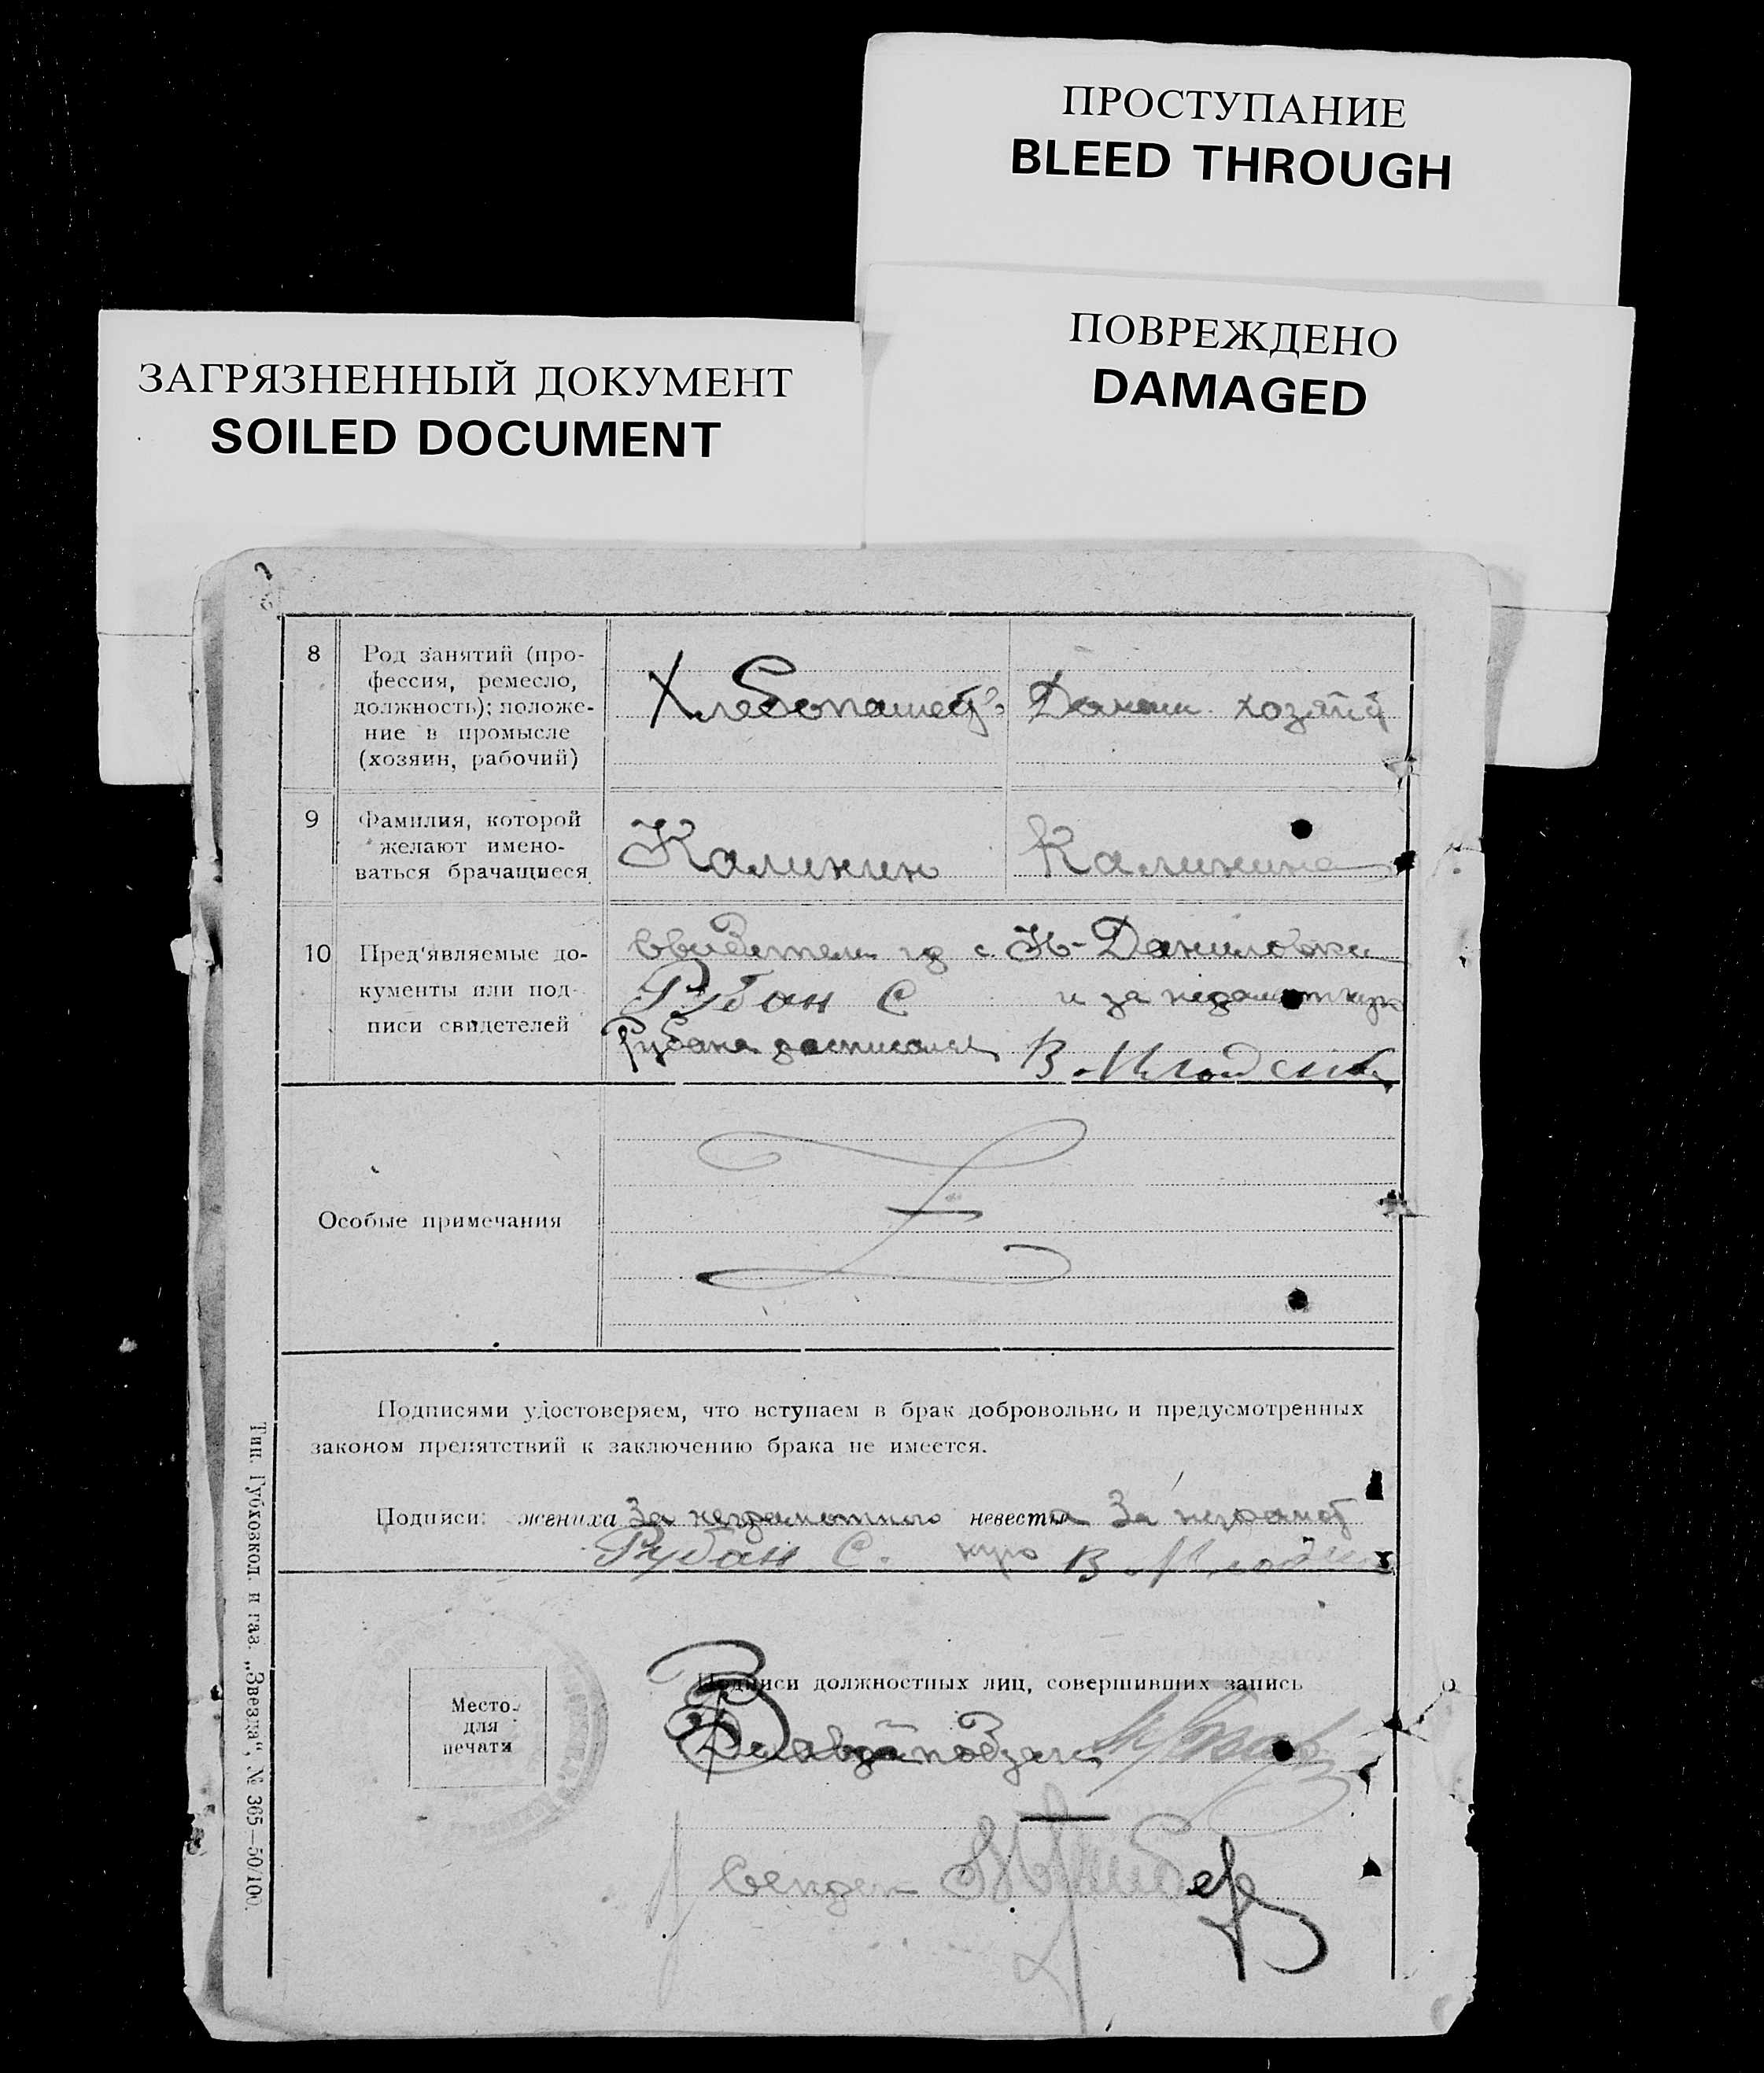 ПРОСТУПАНИЕ
BLEED THROUGH
ПОВРЕЖДЕНО
DAMAGED
ЗАГРЯЗНЕННЫЙ ДОКУМЕНТ
SOILED DOCUMENT
8
Род занятий (про-
фессия, ремесло,
должность); положе-
ние в промысле
(хозяин, рабочий)
Хлебопашец
Домаш. хозяй
9
Фамилия, которой
желают имено-
ваться брачащиеся
Калинин
Калинина
10
Пред'являемые до-
кументы или под-
писи свидетелей
Свидетели гр с. Н-Даниловки
Рубан С и за неграмотную
Рубана расписался В.
Особые примечания
Подписями удостоверяем, что вступаем в брак добровольно и предусмотренных
законом препятствий к заключению брака не имеется.
Подписи: жениха За неграмотного невесты За неграмот
Рубан С. ную В.
Место
для
печати
Подписи должностных лиц, совершивших запись
Тип. Губхозкол. и газ. „Звезда", № 365—50/100.